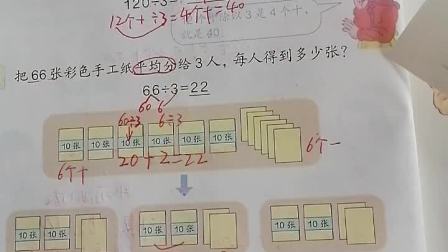 120÷3=
12个十÷3=4个十=40
以3是4个十,
就是40
把66张彩色手工纸平均分给3人,每人得到多少张?
66÷3=22
60 6
60÷3 6÷3
10张 10张 10张 10张 10张 10张
6个十 20+2=22 6个一
10张 10张 10张 10张 10张 10张